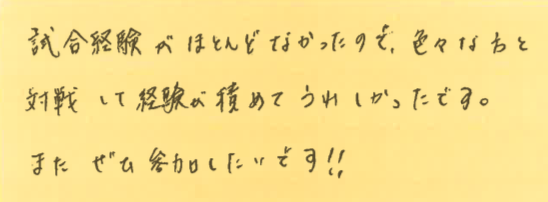 試合経験がほとんどなかったので、色々な方と
対戦して経験が積めてうれしかったです。
またぜひ参加したいです!!